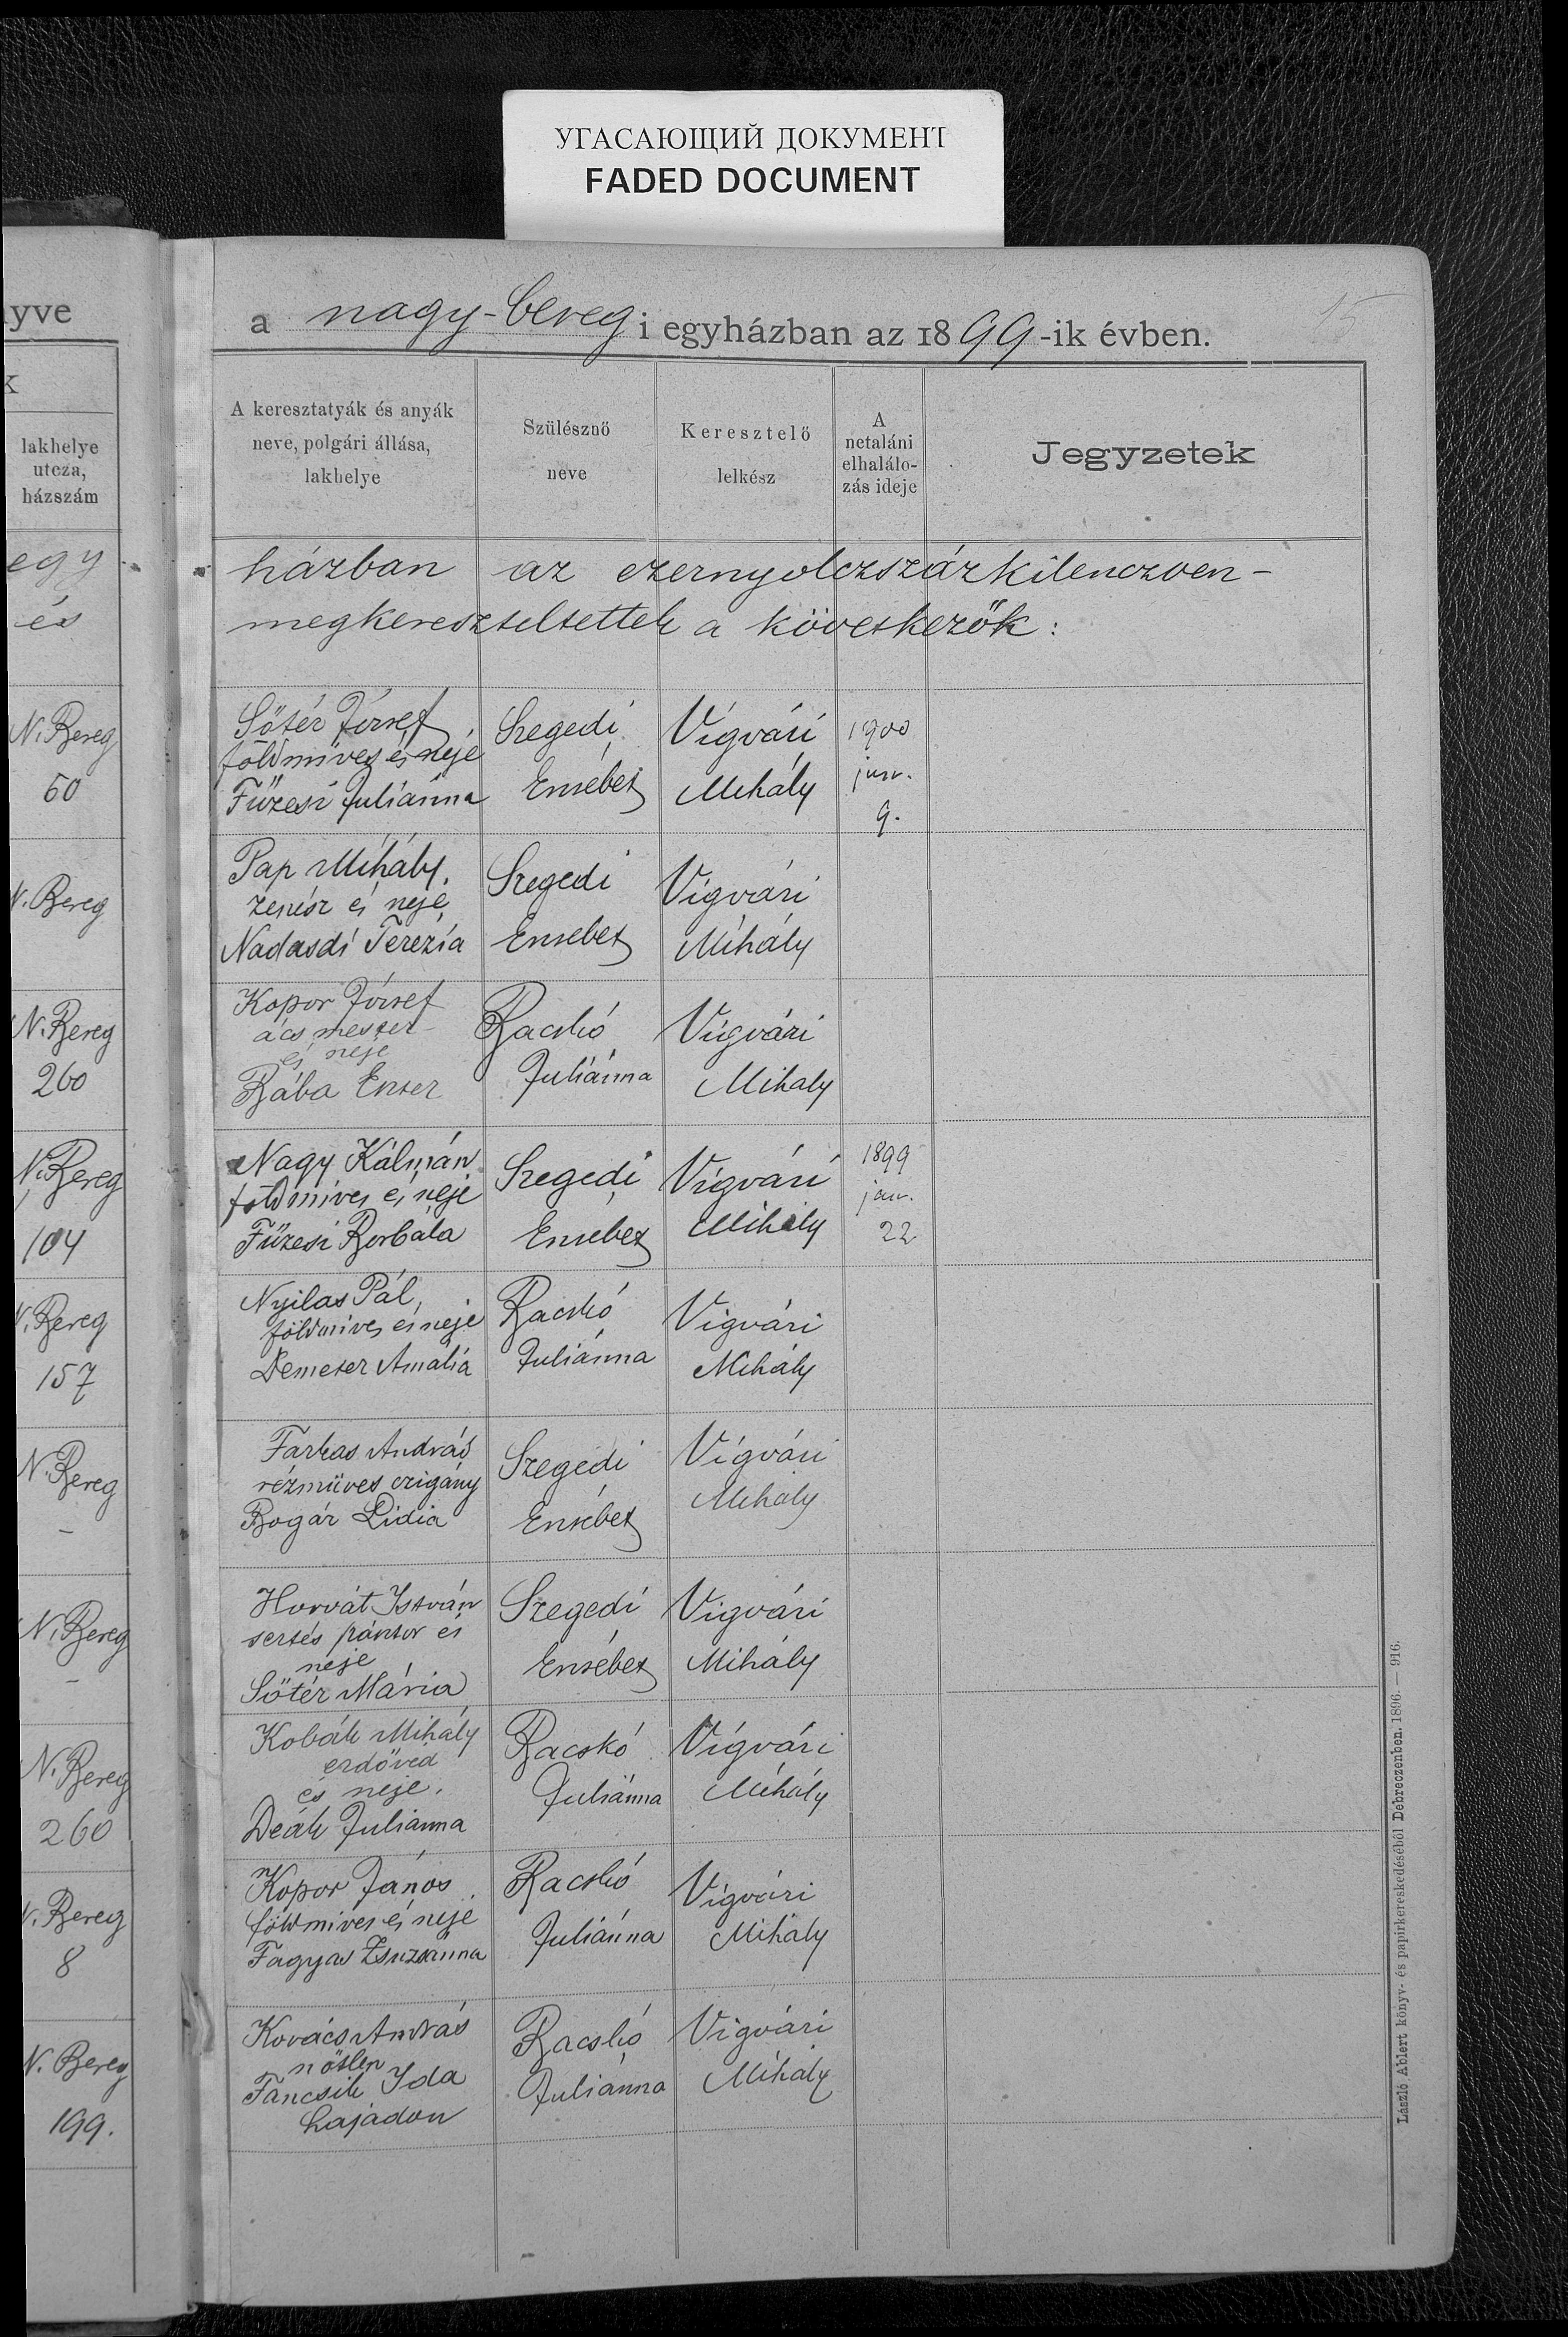 УГАСАЮЩИЙ ДОКУМЕНТ
FADED DOCUMENT
yve
k
lakhelye
utcza,
házszám
egy
és
N. Bereg
60
N. Bereg
N. Bereg
260
N. Bereg
104
N. Bereg
157
N. Bereg
-
N. Bereg
-
N. Bereg
260
N. Bereg
8
N. Bereg
199.
15
a nagy-bereg i egyházban az 1899-ik évben.
A keresztatyák és anyák
neve, polgári állása,
lakhelye
Szülésznő
neve
Keresztelő
lelkész
A
netaláni
elhalálo-
zás ideje
Jegyzetek
házban az ezernyolczszázkilenczven-
megkereszteltettek a következők:
Sőtér József
földmíves és neje
Füzesi Juliánna
Szegedi
Ersébet
Vígvári
Mihály
1900
jan.
9.
Pap Mihály,
zenész és neje
Nadasdi Terézia
Szegedi
Ersebet
Vígvári
Mihály
Kopor József
ács mester
és neje
Bába Eszter
Bacskó
Juliánna
Vígvári
Mihaly
Nagy Kálmán
földmíves és neje
Füzesi Borbála
Szegedi
Ersébet
Vígvári
Mihály
1899
jan.
22
Nyilas Pál,
földmíves és neje
Demeter Amália
Bacskó
Juliánna
Vigvári
Mihály
Farkas András
rézmüves czigány
Bogár Lidia
Szegedi
Ersébet
Vígvári
Mihály
Horvát István
sertés pásztor és
neje
Sőtér Mária
Szegedi
Ersébet
Vigvári
Mihály
Kobák Mihály
erdővéd
és neje.
Deák Julianna
Bacskó
Juliánna
Vígvári
Mihály
Kopor János
földmíves és neje
Fagyas Zsuzsánna
Bacskó
Juliánna
Vigvári
Mihály
Kovács András
nőtlen
Fancsik Ida
hajadon
Bacskó
Juliánna
Vigvári
Mihály
László Albert könyv- és papirkereskedéséből Debreczenben. 1896. — 916.